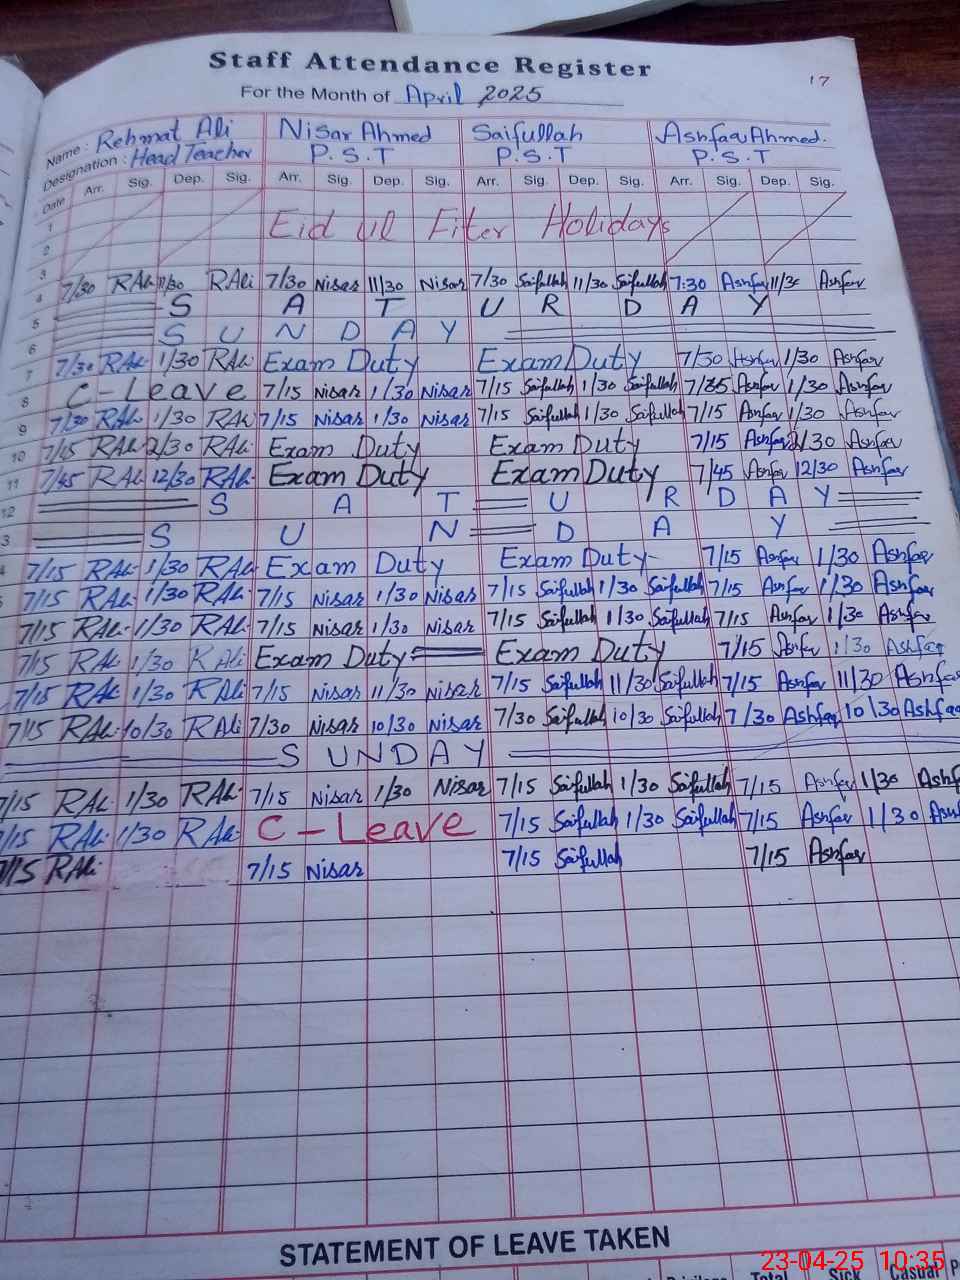 Staff Attendance Register
17
For the Month of April 2025
Name : Rehmat Ali Nisar Ahmed Saifullah Ashfaq Ahmed.
Designation : Head Teacher P.S.T P.S.T P.S.T
Date Arr. Sig. Dep. Sig. Arr. Sig. Dep. Sig. Arr. Sig. Dep. Sig. Arr. Sig. Dep. Sig.
1 Eid ul Fiter Holidays
2
3
4 7/30 RAli 11/30 RAli 7/30 Nisar 11/30 Nisar 7/30 Saifullah 11/30 Saifullah 7:30 Ashfaq 11/30 Ashfaq
5 S A T U R D A Y
6 S U N D A Y
7 7/30 RAli 1/30 RAli Exam Duty Exam Duty 7/30 Ashfaq 1/30 Ashfaq
8 C-Leave 7/15 Nisar 1/30 Nisar 7/15 Saifullah 1/30 Saifullah Ashfaq 1/30 Ashfaq
9 7/30 RAli 1/30 RAli 7/15 Nisar 1/30 Nisar 7/15 Saifullah 1/30 Saifullah 7/15 Ashfaq 1/30 Ashfaq
10 7/45 RAli 12/30 RAli Exam Duty Exam Duty 7/15 Ashfaq Ashfaq
11 7/45 RAli 12/30 RAli Exam Duty Exam Duty 7/45 Ashfaq 12/30 Ashfaq
12 S A T U R D A Y
3 S U N D A Y
4 7/15 RAli 1/30 RAli Exam Duty Exam Duty 7/15 Ashfaq 1/30 Ashfaq
7/15 RAli 1/30 RAli 7/15 Nisar 1/30 Nisar 7/15 Saifullah 1/30 Saifullah 7/15 Ashfaq 1/30 Ashfaq
7/15 RAli 1/30 RAli 7/15 Nisar 1/30 Nisar 7/15 Saifullah 1/30 Saifullah 7/15 Ashfaq 1/30 Ashfaq
7/15 RAli 1/30 RAli Exam Duty Exam Duty 7/15 Ashfaq 1/30 Ashfaq
7/15 RAli 1/30 RAli 7/15 Nisar 11/30 Nisar 7/15 Saifullah 11/30 Saifullah 7/15 Ashfaq 11/30 Ashfaq
7/15 RAli 10/30 RAli 7/30 Nisar 10/30 Nisar 7/30 Saifullah 10/30 Saifullah 7/30 Ashfaq 10/30 Ashfaq
S U N D A Y
7/15 RAli 1/30 RAli 7/15 Nisar 1/30 Nisar 7/15 Saifullah 1/30 Saifullah 7/15 Ashfaq 1/30 Ashf
7/15 RAli 1/30 RAli C-Leave 7/15 Saifullah 1/30 Saifullah 7/15 Ashfaq 1/30 Ash
7/15 RAli 7/15 Nisar 7/15 Saifullah 7/15 Ashfaq
STATEMENT OF LEAVE TAKEN
Total Sick Casual
23-04-25 10:35